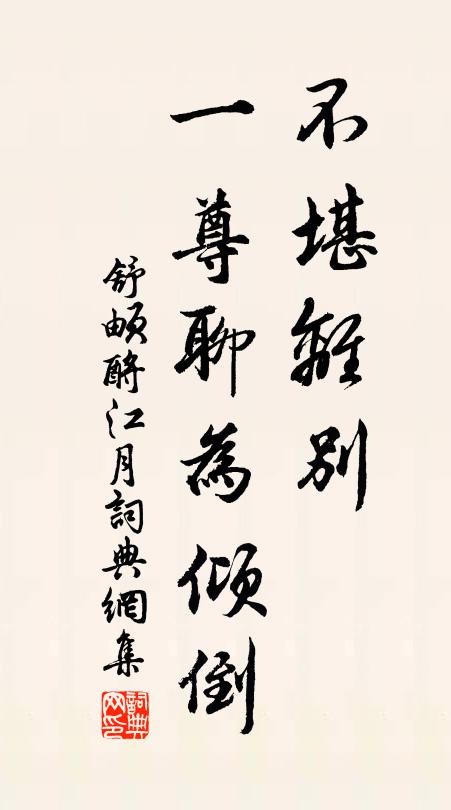 不堪離別
一尊聊為傾倒
舒頔酹江月詞典網集
詞典
网印